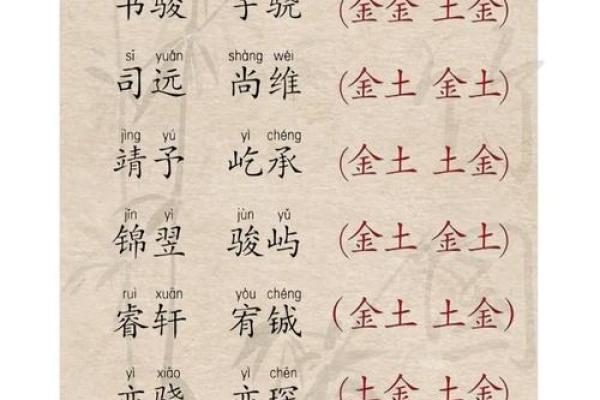 书骏 子骁 (金金 土金)
sī yuǎn shàng wéi
司远 尚维 (金土 金土)
jìng yú yì chéng
靖予 屹承 (金土 土金)
jǐn yì jùn yǔ
锦翌 骏屿 (金土 金土)
ruì xuān yòu chéng
睿轩 宥铖 (金土 土金)
yì xiāo yì chēn
亦骁 亦琛 (土金 土金)